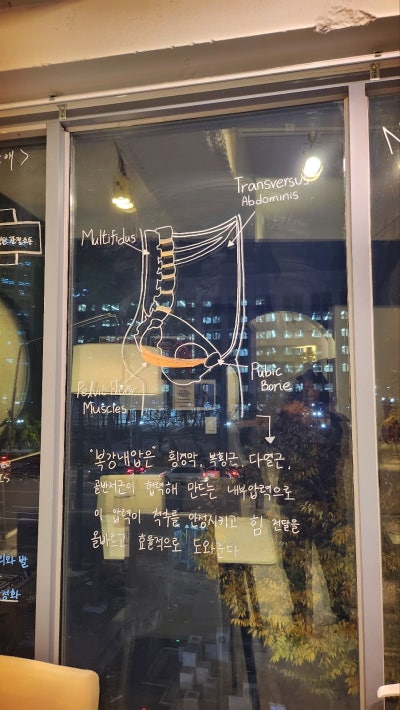 Transversus
Abdominis
Multifidus
Pubic
Bone
Pelvic Floor
Muscles
"복강내압은" 횡경막, 복횡근, 다열근,
골반저근이 협력해 만드는 내부압력으로
이 압력이 척추를 안정시키고 힘 전달을
올바르고 효율적으로 도와준다